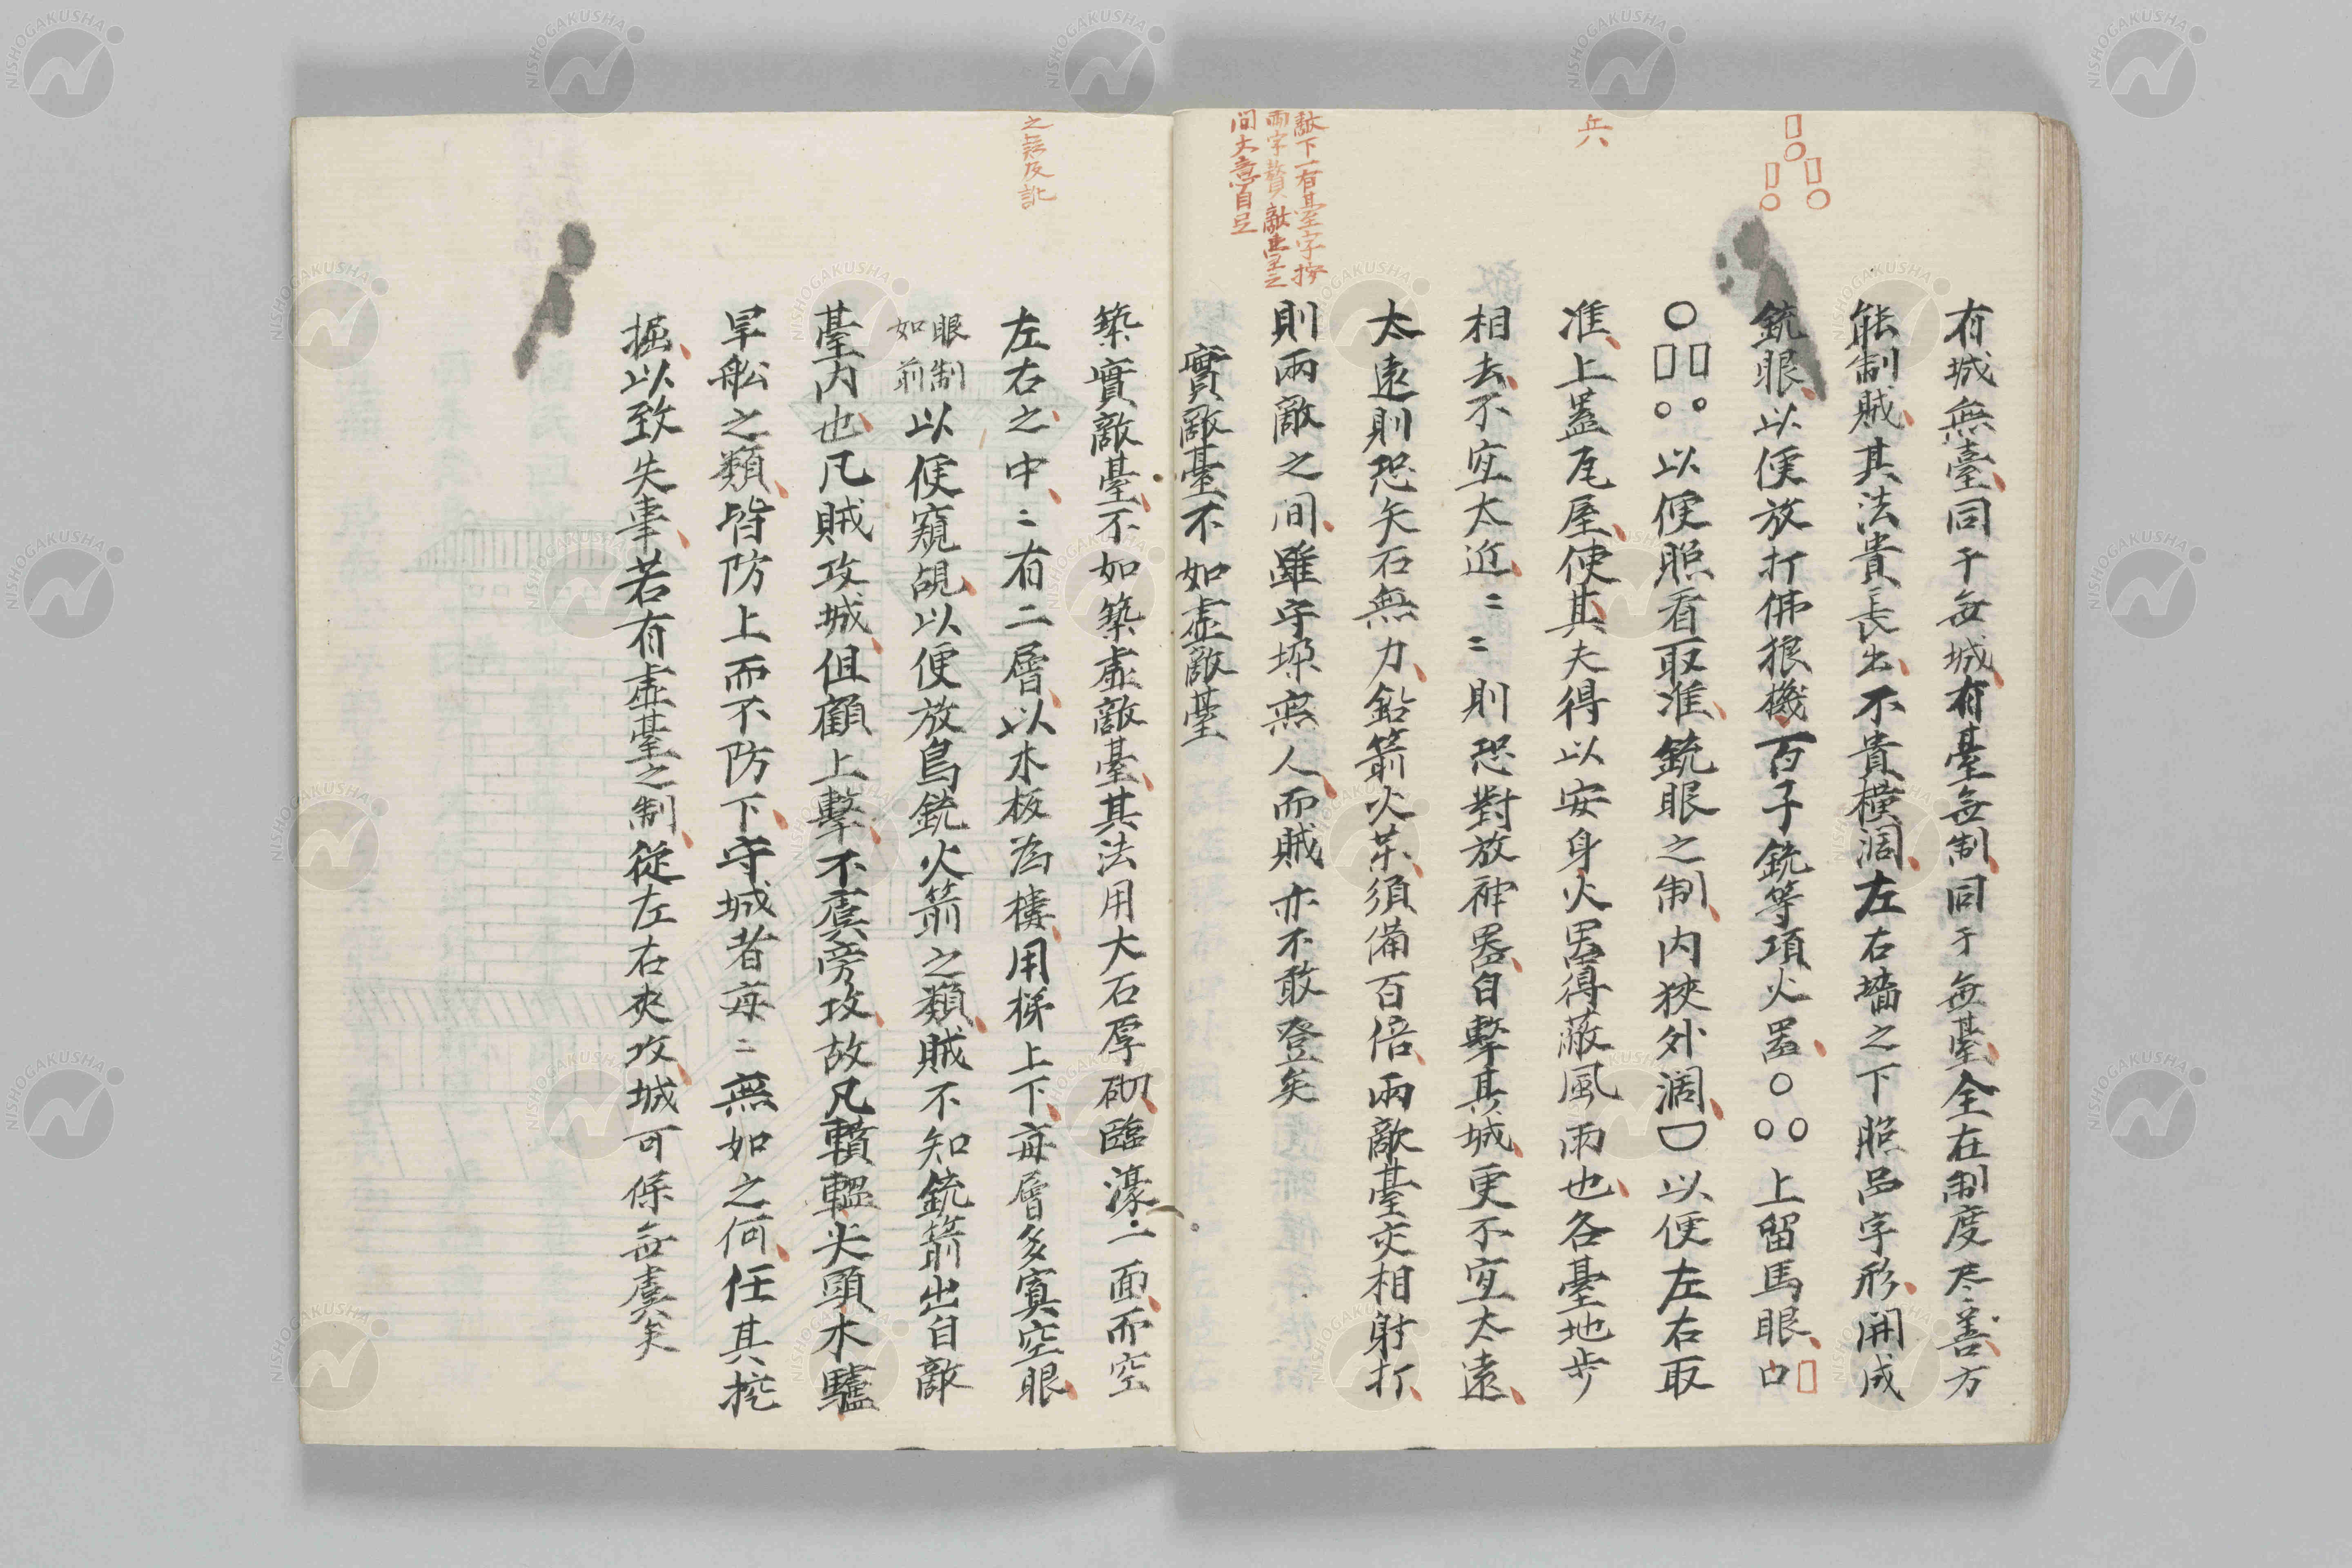 有城無臺同于無城有臺無制同于無臺全在制度尽善方
能制賊其法貴長出不貴横濶左右墻之下照品字形開成
銃眼以便放打佛狼機百子銃等項火器○○○上留馬眼口
○□□○○以便照看取准銃眼之制内狹外濶以便左右取
准上蓋瓦屋使其夫得以安身火器得蔽風雨也各臺地步
兵
相去不宜太近〻〻則恐對放神器自擊其城更不宜太遠
太遠則恐矢石無力鉛箭火茶須備百倍兩敵臺交相射打
則兩敵之间雖守垜無人而賊亦不敢登矣
敵下一有臺字按
兩字贅敵臺之
间大意自足
實敵臺不如虚敵臺
築實敵臺不如築虚敵臺其法用大石厚砌臨濠二面而空
左右之中〻有二層以木板為樓用梯上下每層多寘空眼
之疑反訛
眼制
如前
以便窺覘以便放鳥銃火箭之類賊不知銃箭出自敵
臺内也凡賊攻城但顧上擊不虞旁攻故凡轒轀尖頭木驢
旱船之類皆防上而不防下守城者每〻無如之何任其挖
掘以致失事若有虚臺之制從左右夾攻城可保無虞矣